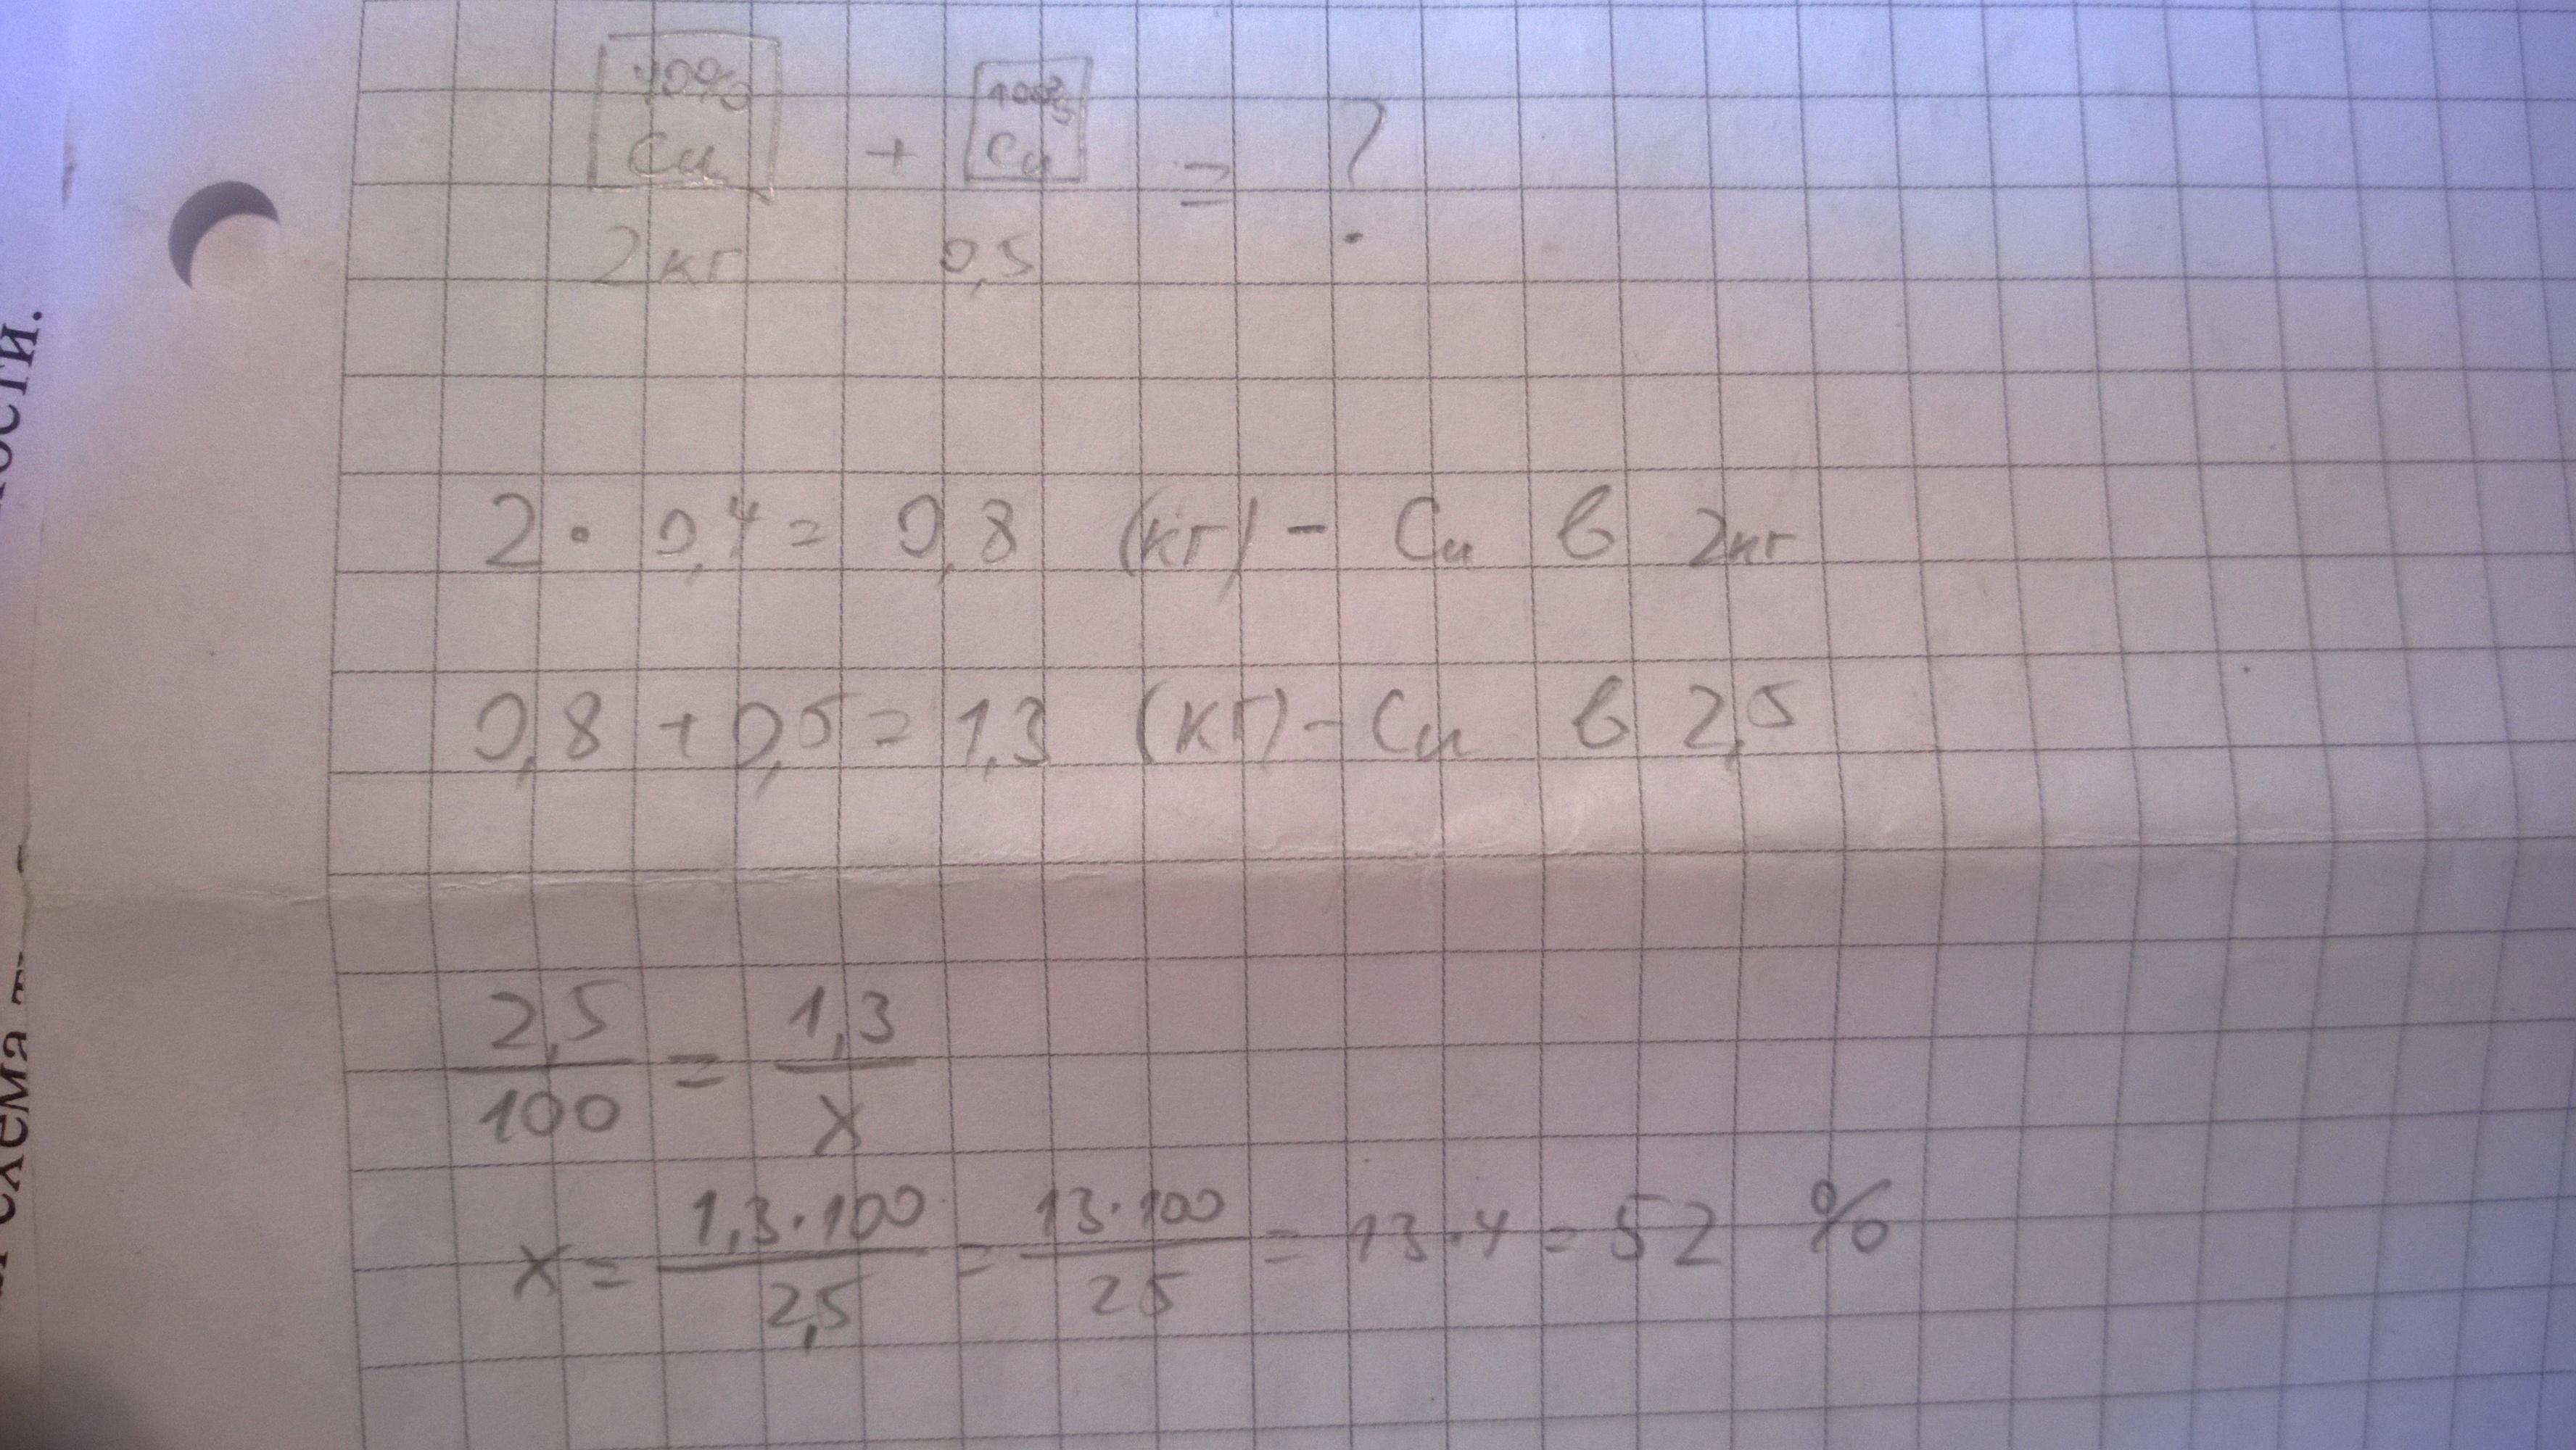 40% 100%
Cu + Cu = ?
2кг 0,5
2 · 0,4 = 0,8 (кг) - Cu в 2кг
0,8 + 0,5 = 1,3 (кг) - Cu в 2,5
2,5/100 = 1,3/x
x = 1,3·100/2,5 = 13·100/25 = 13·4 = 52 %
ости.
схема